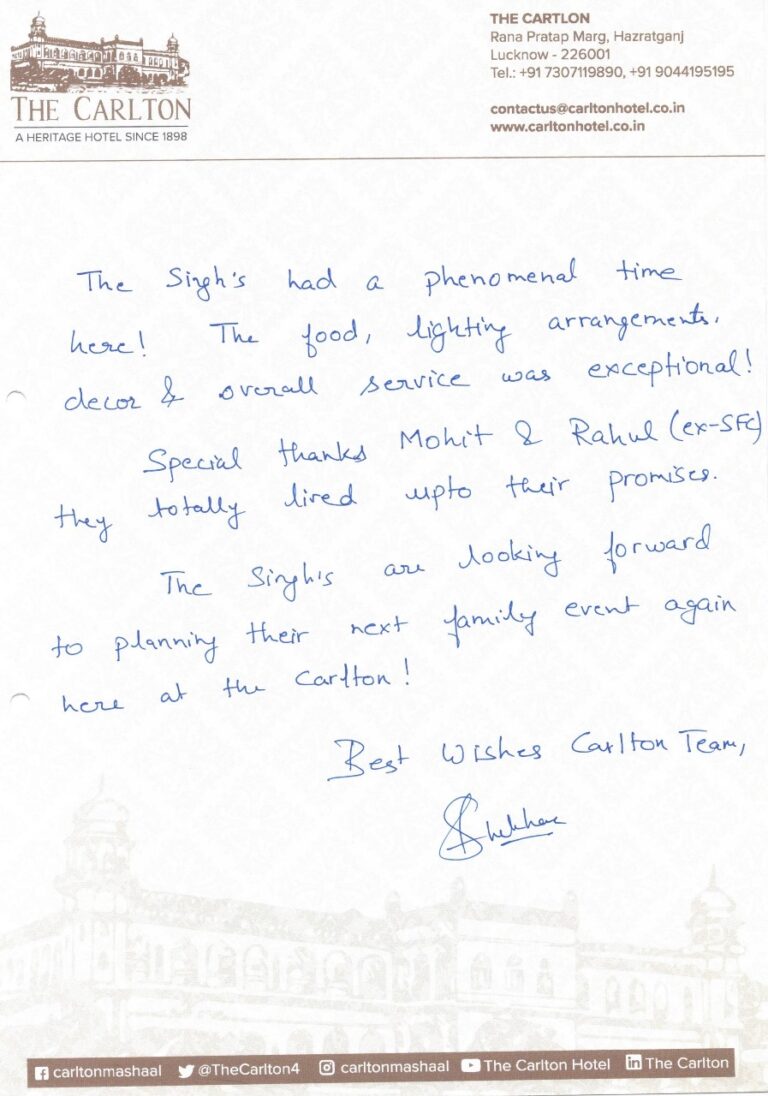 THE CARLTON
A HERITAGE HOTEL SINCE 1898
THE CARTLON
Rana Pratap Marg, Hazratganj
Lucknow - 226001
Tel.: +91 7307119890, +91 9044195195
contactus@carltonhotel.co.in
www.carltonhotel.co.in
The Singh's had a phenomenal time
here! The food, lighting arrangements,
decor & overall service was exceptional!
Special thanks Mohit & Rahul (ex-SFC)
they totally lived upto their promises.
The Singh's are looking forward
to planning their next family event again
here at the Carlton!
Best Wishes Carlton Team,
Shekhar
carltonmashaal @TheCarlton4 carltonmashaal The Carlton Hotel The Carlton